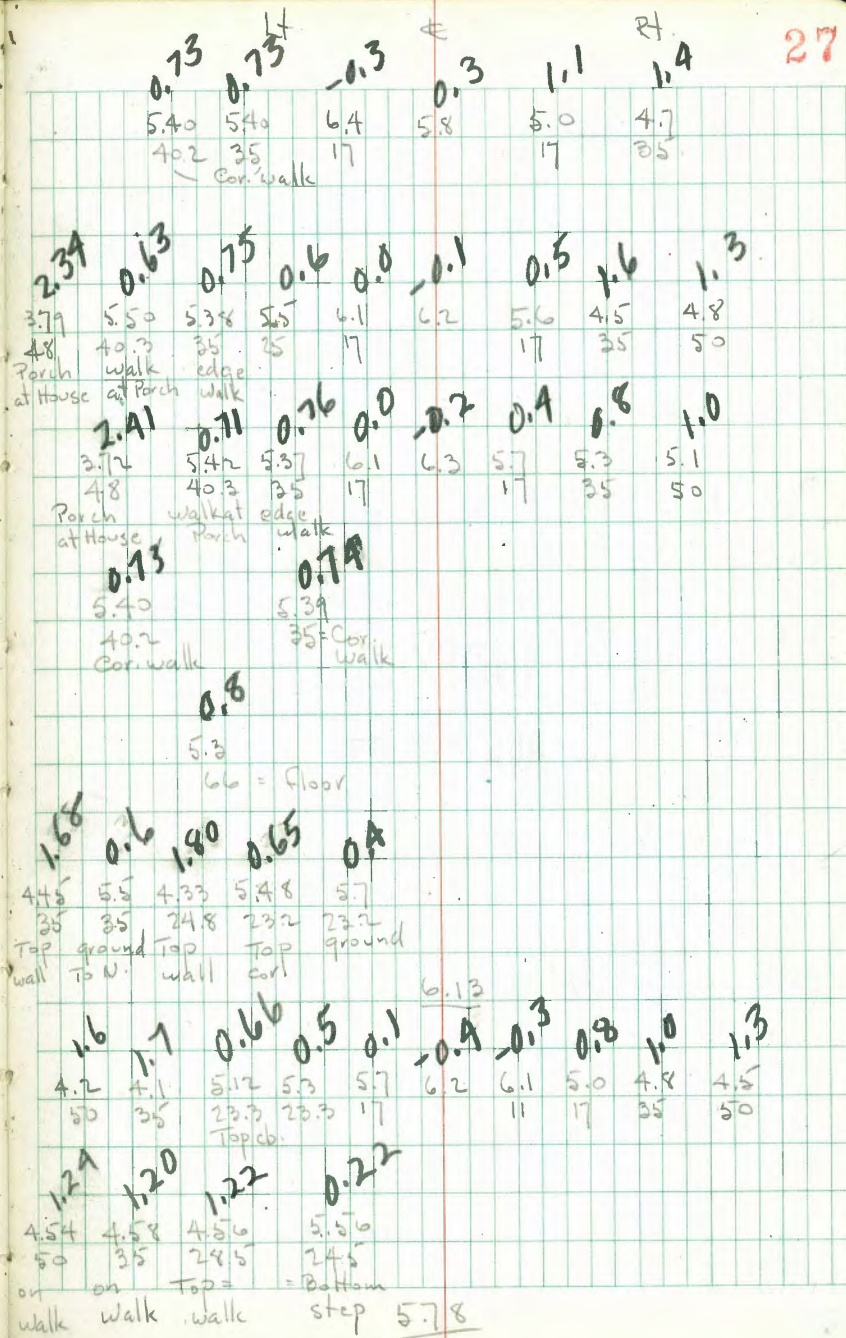 Lt ℄ Rt. 27
0.73 0.73 -0.3 0.3 1.1 1.4
5.40 5.40 6.4 5.8 5.0 4.7
40.2 35 17 17 35
Cor. walk
2.34 0.63 0.75 0.6 0.0 -0.1 0.5 1.6 1.3
3.79 5.50 5.38 5.5 6.1 6.2 5.6 4.5 4.8
48 40.3 35 25 17 17 35 50
Porch walk edge
at House at Porch walk
2.41 0.71 0.76 0.0 -0.2 0.4 0.8 1.0
3.72 5.42 5.37 6.1 6.3 5.7 5.3 5.1
48 40.3 35 17 17 35 50
Porch walk at edge
at House Porch walk
0.73 0.74
5.40 5.39
40.2 35 = Cor.
Cor. walk walk
0.8
5.3
66 = floor
1.68 0.6 1.80 0.65 0.4
4.45 5.5 4.33 5.48 5.7
35 35 24.8 23.2 23.2
Top ground Top Top ground
wall To N. wall
6.13
1.6 1.7 0.66 0.5 0.1 -0.4 -0.3 0.8 1.0 1.3
4.2 4.1 5.12 5.3 5.7 6.2 6.1 5.0 4.8 4.5
50 35 23.3 23.3 17 11 17 35 50
Top cb.
1.24 1.20 1.22 0.22
4.54 4.58 4.56 5.56
50 35 28.5 24.5
on on Top = = Bottom
walk walk walk step 5.78